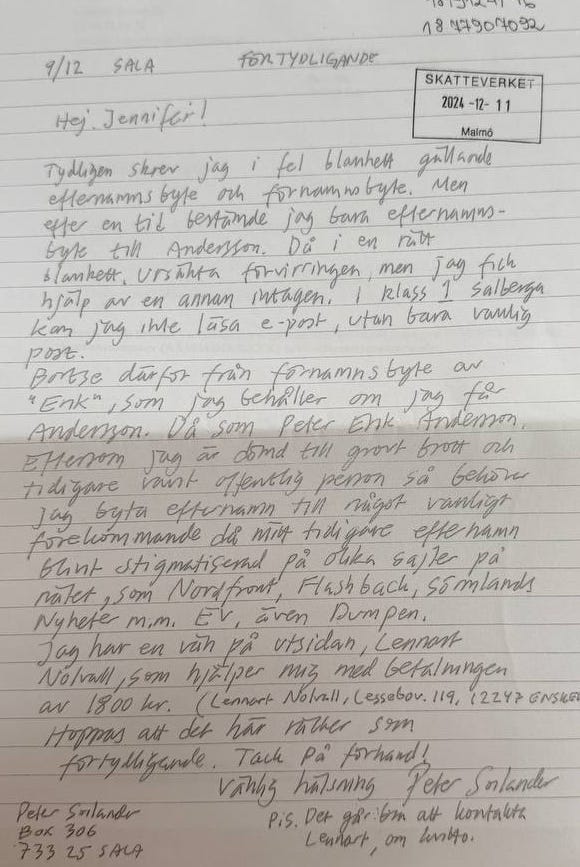 1877907092
9/12 SALA FÖRTYDLIGANDE
SKATTEVERKET
2024-12-11
Malmö
Hej Jennifer!
Tydligen skrev jag i fel blankett gällande
efternamnsbyte och förnamnsbyte. Men
efter en tid bestämde jag bara efternamns-
byte till Andersson. Då i en rätt
blankett. Ursäkta förvirringen, men jag fick
hjälp av en annan intagen. I klass 1 Salberga
kan jag inte läsa e-post, utan bara vanlig
post.
Bortse därför från förnamnsbyte av
"Erik", som jag behåller om jag får
Andersson. Då som Peter Erik Andersson.
Eftersom jag är dömd till grovt brott och
tidigare varit offentlig person så behöver
jag byta efternamn till något vanligt
förekommande då mitt tidigare efternamn
blivit stigmatiserad på olika sajter på
nätet, som Nordfront, Flashback, Sörmlands
Nyheter m.m. EV, även Dumpen.
Jag har en vän på utsidan, Lennart
Nolvall, som hjälper mig med betalningen
av 1800 kr. (Lennart Nolvall, Lessebov. 119, 12247 ENSKE
Hoppas att det här räcker som
förtydligande. Tack på förhand!
Vänlig hälsning Peter Sorlander
Peter Sorlander
Box 306
733 25 SALA
P.S. Det går bra att kontakta
Lennart, om